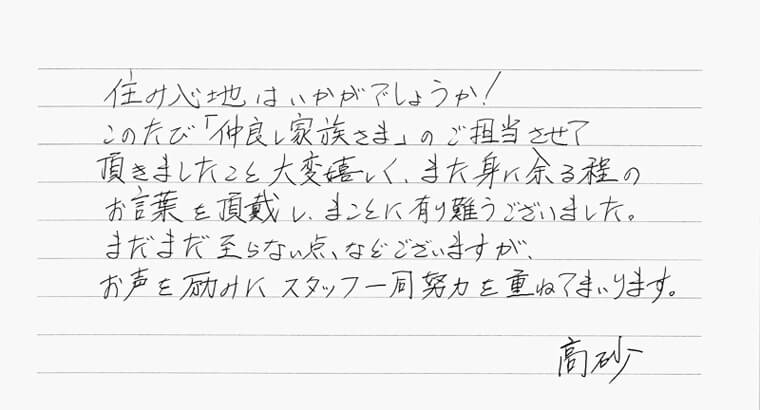 住み心地はいかがでしょうか!
このたび「仲良し家族さま」のご担当させて
頂きましたこと大変嬉しく、また身に余る程の
お言葉を頂戴し、まことに有り難うございました。
まだまだ至らない点、などございますが、
お声を励みにスタッフ一同努力を重ねてまいります。
高砂